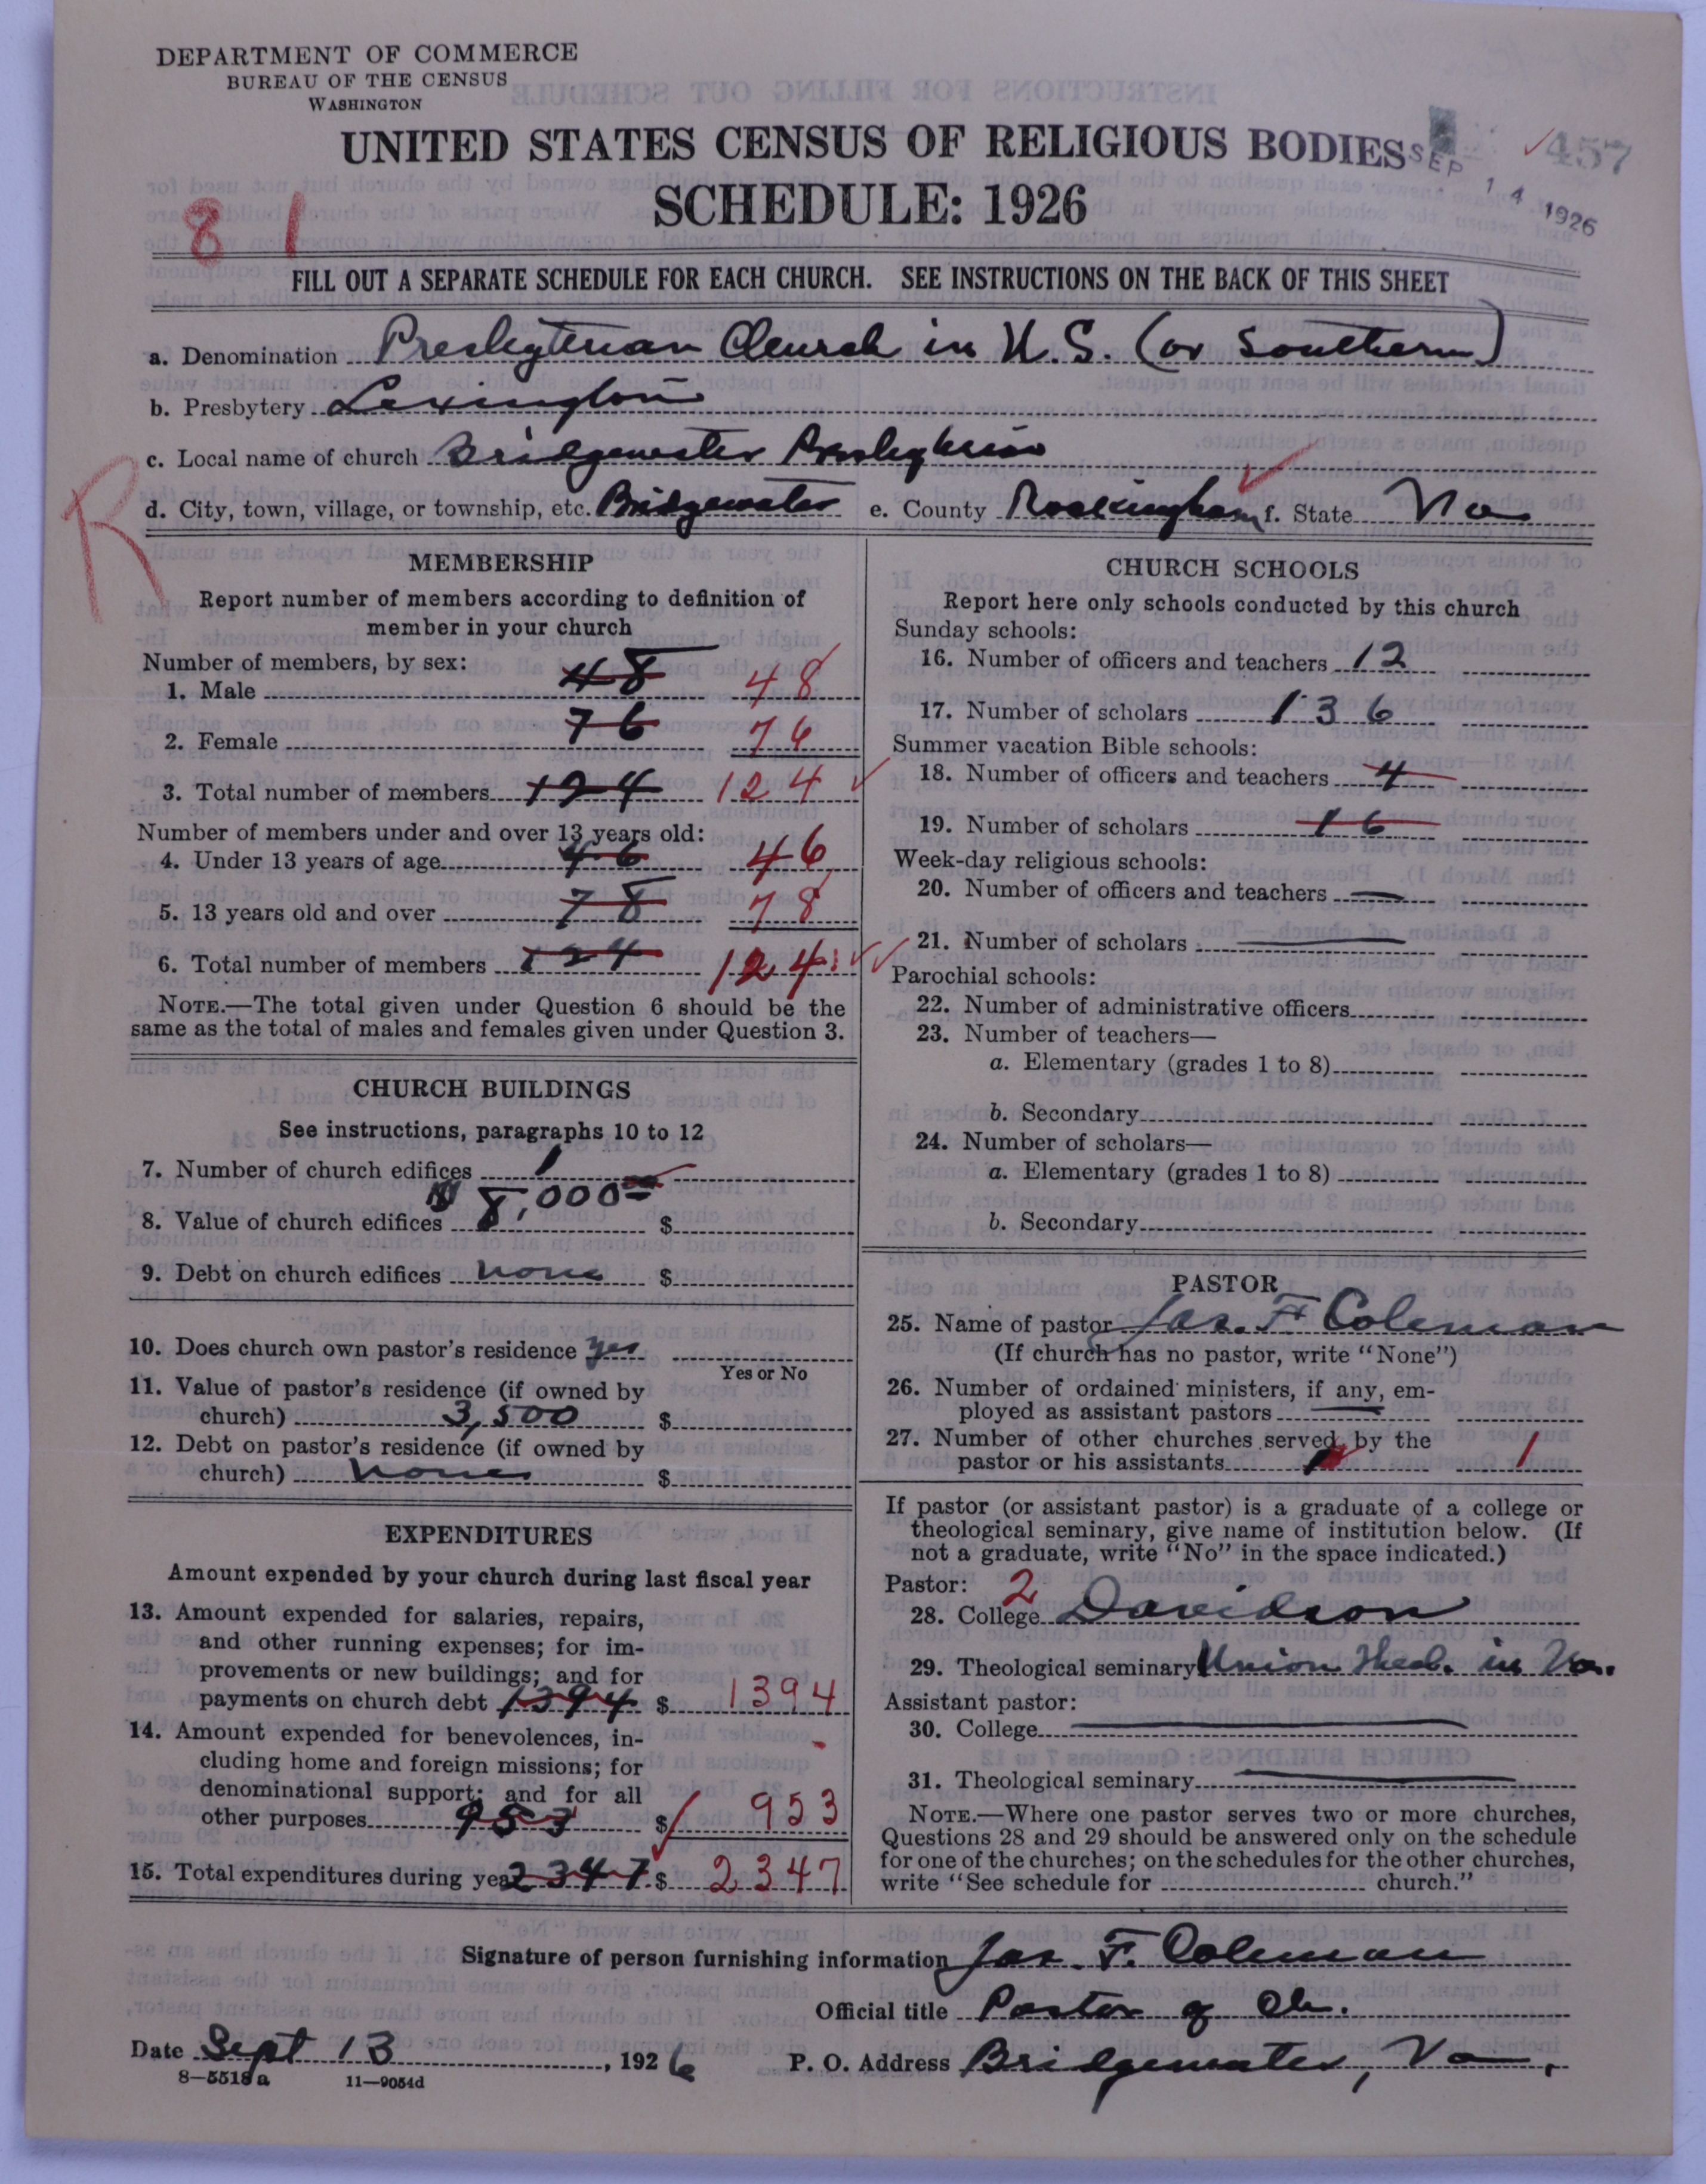 DEPARTMENT OF COMMERCE
BUREAU OF THE CENSUS
WASHINGTON
UNITED STATES CENSUS OF RELIGIOUS BODIES
SCHEDULE: 1926
SEP 14 1926
457
81
FILL OUT A SEPARATE SCHEDULE FOR EACH CHURCH. SEE INSTRUCTIONS ON THE BACK OF THIS SHEET
a. Denomination Presbyterian Church in U.S. (or Southern)
b. Presbytery Lexington
c. Local name of church Bridgewater Presbyterian
d. City, town, village, or township, etc. Bridgewater e. County Rockingham f. State Va.
R
MEMBERSHIP
Report number of members according to definition of
member in your church
Number of members, by sex:
1. Male 48 48
2. Female 76 76
3. Total number of members 124 124
Number of members under and over 13 years old:
4. Under 13 years of age 46 46
5. 13 years old and over 78 78
6. Total number of members 124 124
NOTE.—The total given under Question 6 should be the
same as the total of males and females given under Question 3.
CHURCH BUILDINGS
See instructions, paragraphs 10 to 12
7. Number of church edifices 1
8. Value of church edifices 8,000 00 $
9. Debt on church edifices none $
10. Does church own pastor's residence yes
Yes or No
11. Value of pastor's residence (if owned by
church) 3,500 $
12. Debt on pastor's residence (if owned by
church) none $
EXPENDITURES
Amount expended by your church during last fiscal year
13. Amount expended for salaries, repairs,
and other running expenses; for im-
provements or new buildings; and for
payments on church debt 1394 $ 1394
14. Amount expended for benevolences, in-
cluding home and foreign missions; for
denominational support; and for all
other purposes 953 $ 953
15. Total expenditures during year 2347 $ 2347
CHURCH SCHOOLS
Report here only schools conducted by this church
Sunday schools:
16. Number of officers and teachers 12
17. Number of scholars 136
Summer vacation Bible schools:
18. Number of officers and teachers 4
19. Number of scholars 16
Week-day religious schools:
20. Number of officers and teachers —
21. Number of scholars —
Parochial schools:
22. Number of administrative officers
23. Number of teachers—
a. Elementary (grades 1 to 8)
b. Secondary
24. Number of scholars—
a. Elementary (grades 1 to 8)
b. Secondary
PASTOR
25. Name of pastor Jas. F. Coleman
(If church has no pastor, write "None")
26. Number of ordained ministers, if any, em-
ployed as assistant pastors —
27. Number of other churches served by the
pastor or his assistants 1 1
If pastor (or assistant pastor) is a graduate of a college or
theological seminary, give name of institution below. (If
not a graduate, write "No" in the space indicated.)
Pastor: 2
28. College Davidson
29. Theological seminary Union Theol. in Va.
Assistant pastor:
30. College —
31. Theological seminary —
NOTE.—Where one pastor serves two or more churches,
Questions 28 and 29 should be answered only on the schedule
for one of the churches; on the schedules for the other churches,
write "See schedule for church."
Signature of person furnishing information Jas. F. Coleman
Official title Pastor of Ch.
Date Sept 13, 1926 P. O. Address Bridgewater, Va.,
8—5518a 11—9054d